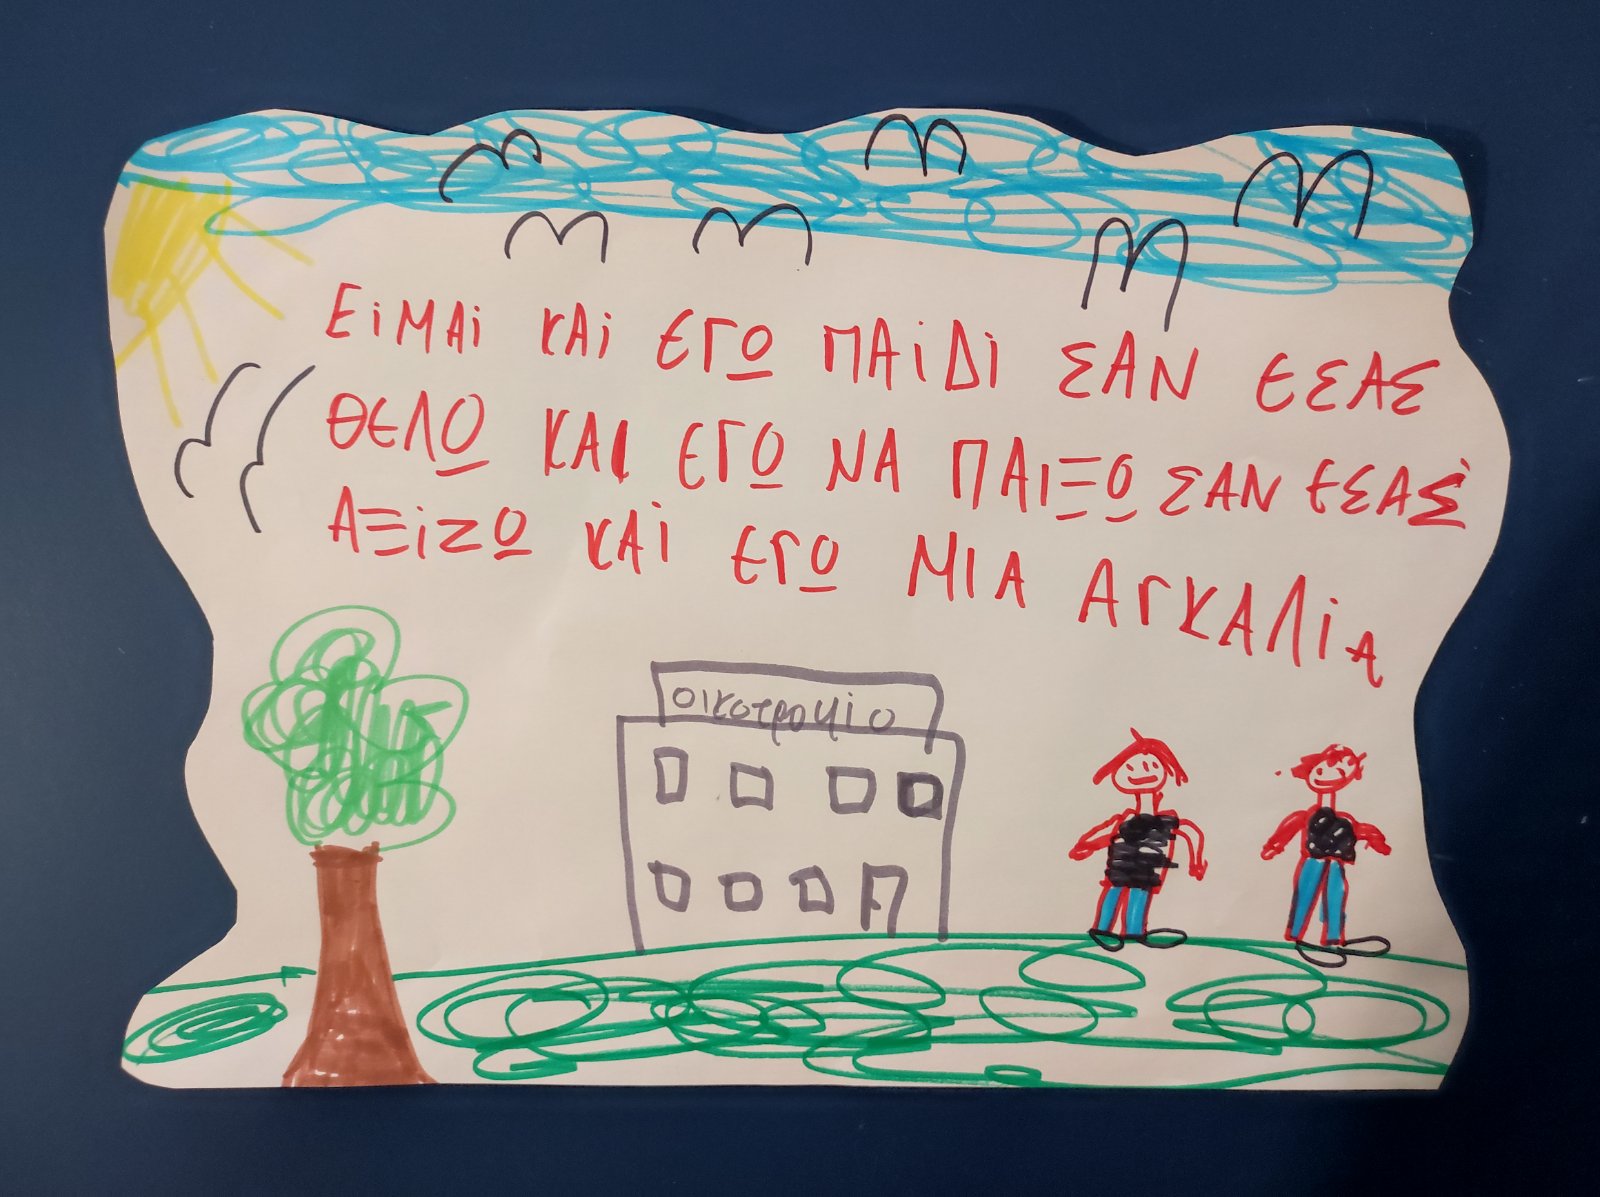 ΕiΜΑi ΚΑi ΕΓΩ ΠΑiΔi ΣΑΝ ΕΣΑΣ
ΘΕΛΩ ΚΑΙ ΕΓΩ ΝΑ ΠΑΙΞΩ ΣΑΝ ΕΣΑΣ
ΑΞiΖΩ ΚΑi ΕΓΩ ΜΙΑ ΑΓΚΑΛiΑ
οικοτροφίο